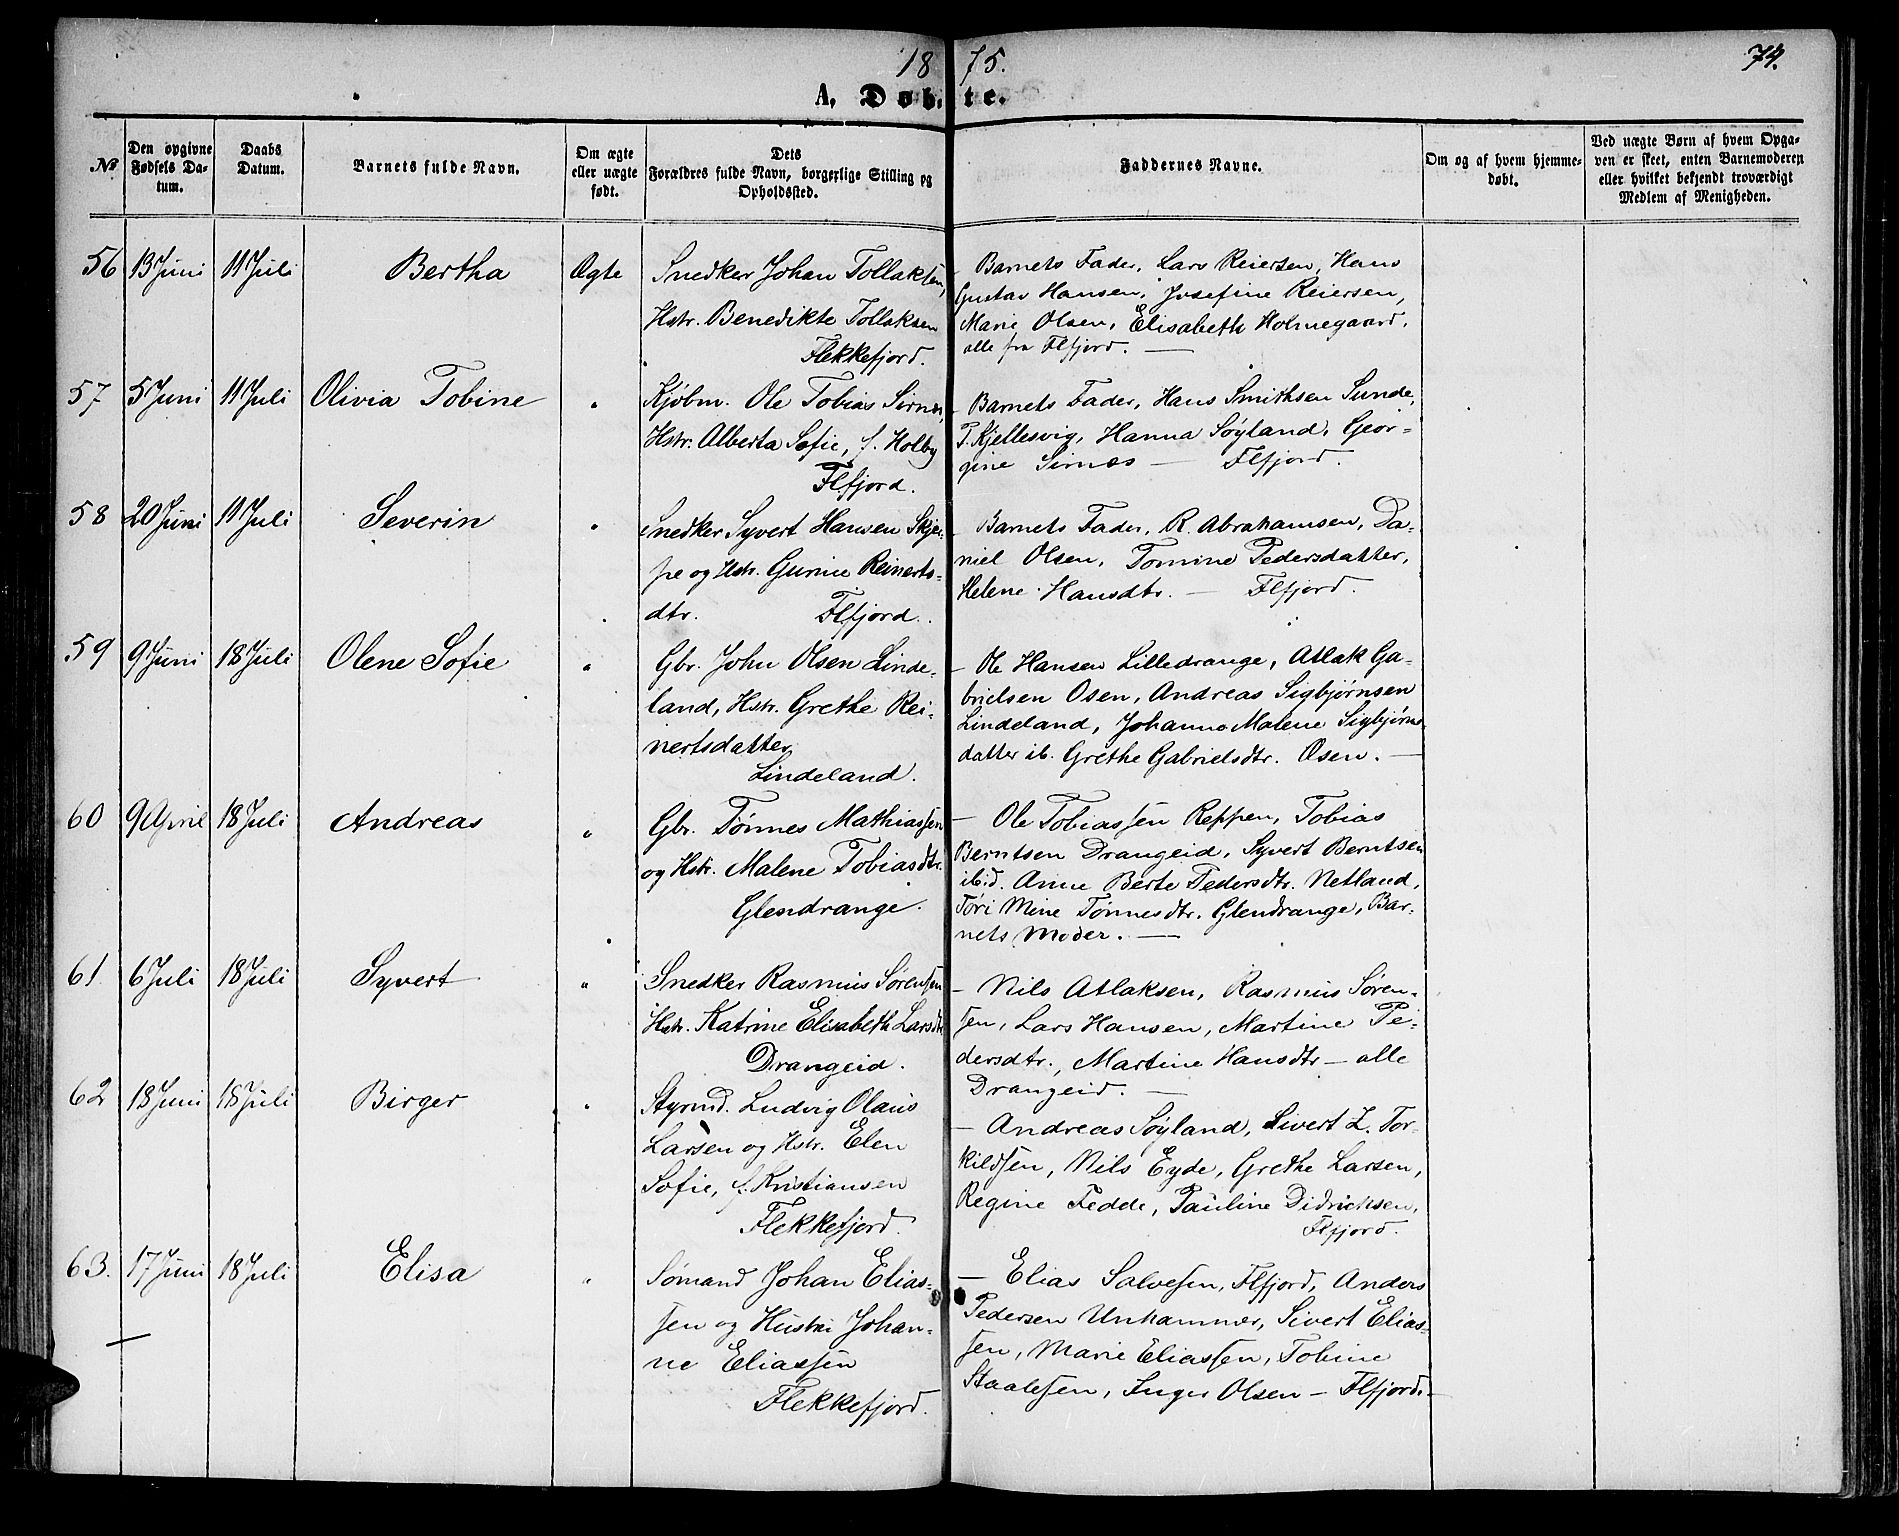 1875.
74.
A. Døbte.
No
Den opgivne Fødsels Datum.
Daabs Datum.
Barnets fulde Navn.
Om ægte eller uægte født.
Dets Forældres fulde Navn, borgerlige Stilling og Opholdssted.
Faddernes Navne.
Om og af hvem hjemmedøbt.
Ved uægte Børn af hvem Opgaven er skeet, enten Barnemoderen eller hvilket bekjendt troværdigt Medlem af Menigheden.
56 13 Juni 11 Juli Bertha Ægte
Snedker Johan Tollaksen,
Hstr. Benedikte Tollaksen
Flekkefjord.
- Barnets Fader, Lars Reiersen, Hans
Gustav Hansen, Josefine Reiersen,
Marie Olsen, Elisabeth Holmegaard,
alle fra Flfjord. —
57 5 Juni 11 Juli Olivia Tobine "
Kjøbm. Ole Tobias Sirnæs,
Hstr. Alberta Sofie, f. Holby
Flfjord.
- Barnets Fader, Hans Smithsen Sunde,
P. Kjellesvig, Hanna Søyland, Geor-
gine Sirnæs — Flfjord.
58 20 Juni 11 Juli Severin "
Snedker Syvert Hansen Skjer-
pe og Hstr. Gurine Reinerts-
dtr. Flfjord.
- Barnets Fader, R. Abrahamsen, Da-
niel Olsen, Tomine Pedersdatter,
Helene Hansdtr. — Flfjord.
59 9 Juni 18 Juli Olene Sofie "
Gbr. John Olsen Linde-
land, Hstr. Grethe Rei-
nertsdatter
Lindeland.
- Ole Hansen Lilledrange, Atlak Ga-
brielsen Osen, Andreas Sigbjørnsen
Lindeland, Johanne Malene Sigbjørns-
datter ib. Grethe Gabrielsdtr. Osen. —
60 9 April 18 Juli Andreas "
Gbr. Tønnes Mathiassen
og Hstr. Malene Tobiasdtr.
Glendrange.
- Ole Tobiassen Reppen, Tobias
Berntsen Drangeid, Syvert Berntsen
ibid. Anne Berte Pedersdtr. Netland,
Tøri Mine Tønnesdtr. Glendrange, Bar-
nets Moder. —
61 6 Juli 18 Juli Syvert "
Snedker Rasmus Sørensen
Hstr. Katrine Elisabeth Larsdtr
Drangeid.
- Nils Atlaksen, Rasmus Søren-
sen, Lars Hansen, Martine Pe-
dersdtr., Martine Hansdtr — alle
Drangeid. —
62 18 Juni 18 Juli Birger "
Styrmd. Ludvig Olaus
Larsen og Hstr. Elen
Sofie, f. Kristiansen
Flekkefjord.
- Andreas Søyland, Sivert Z. Tor-
kildsen, Nils Eyde, Grethe Larsen,
Regine Fedde, Pauline Didrichsen,
Flfjord.
63. 17 Juni 18 Juli Elisa "
Sømand Johan Elias-
sen og Hustru Johan-
ne Eliassen
Flekkefjord.
- Elias Salvesen, Flfjord, Anders
Pedersen Unhammer, Sivert Elias-
sen, Marie Eliassen, Tobine
Staalesen, Inger Olsen — Flfjord. —